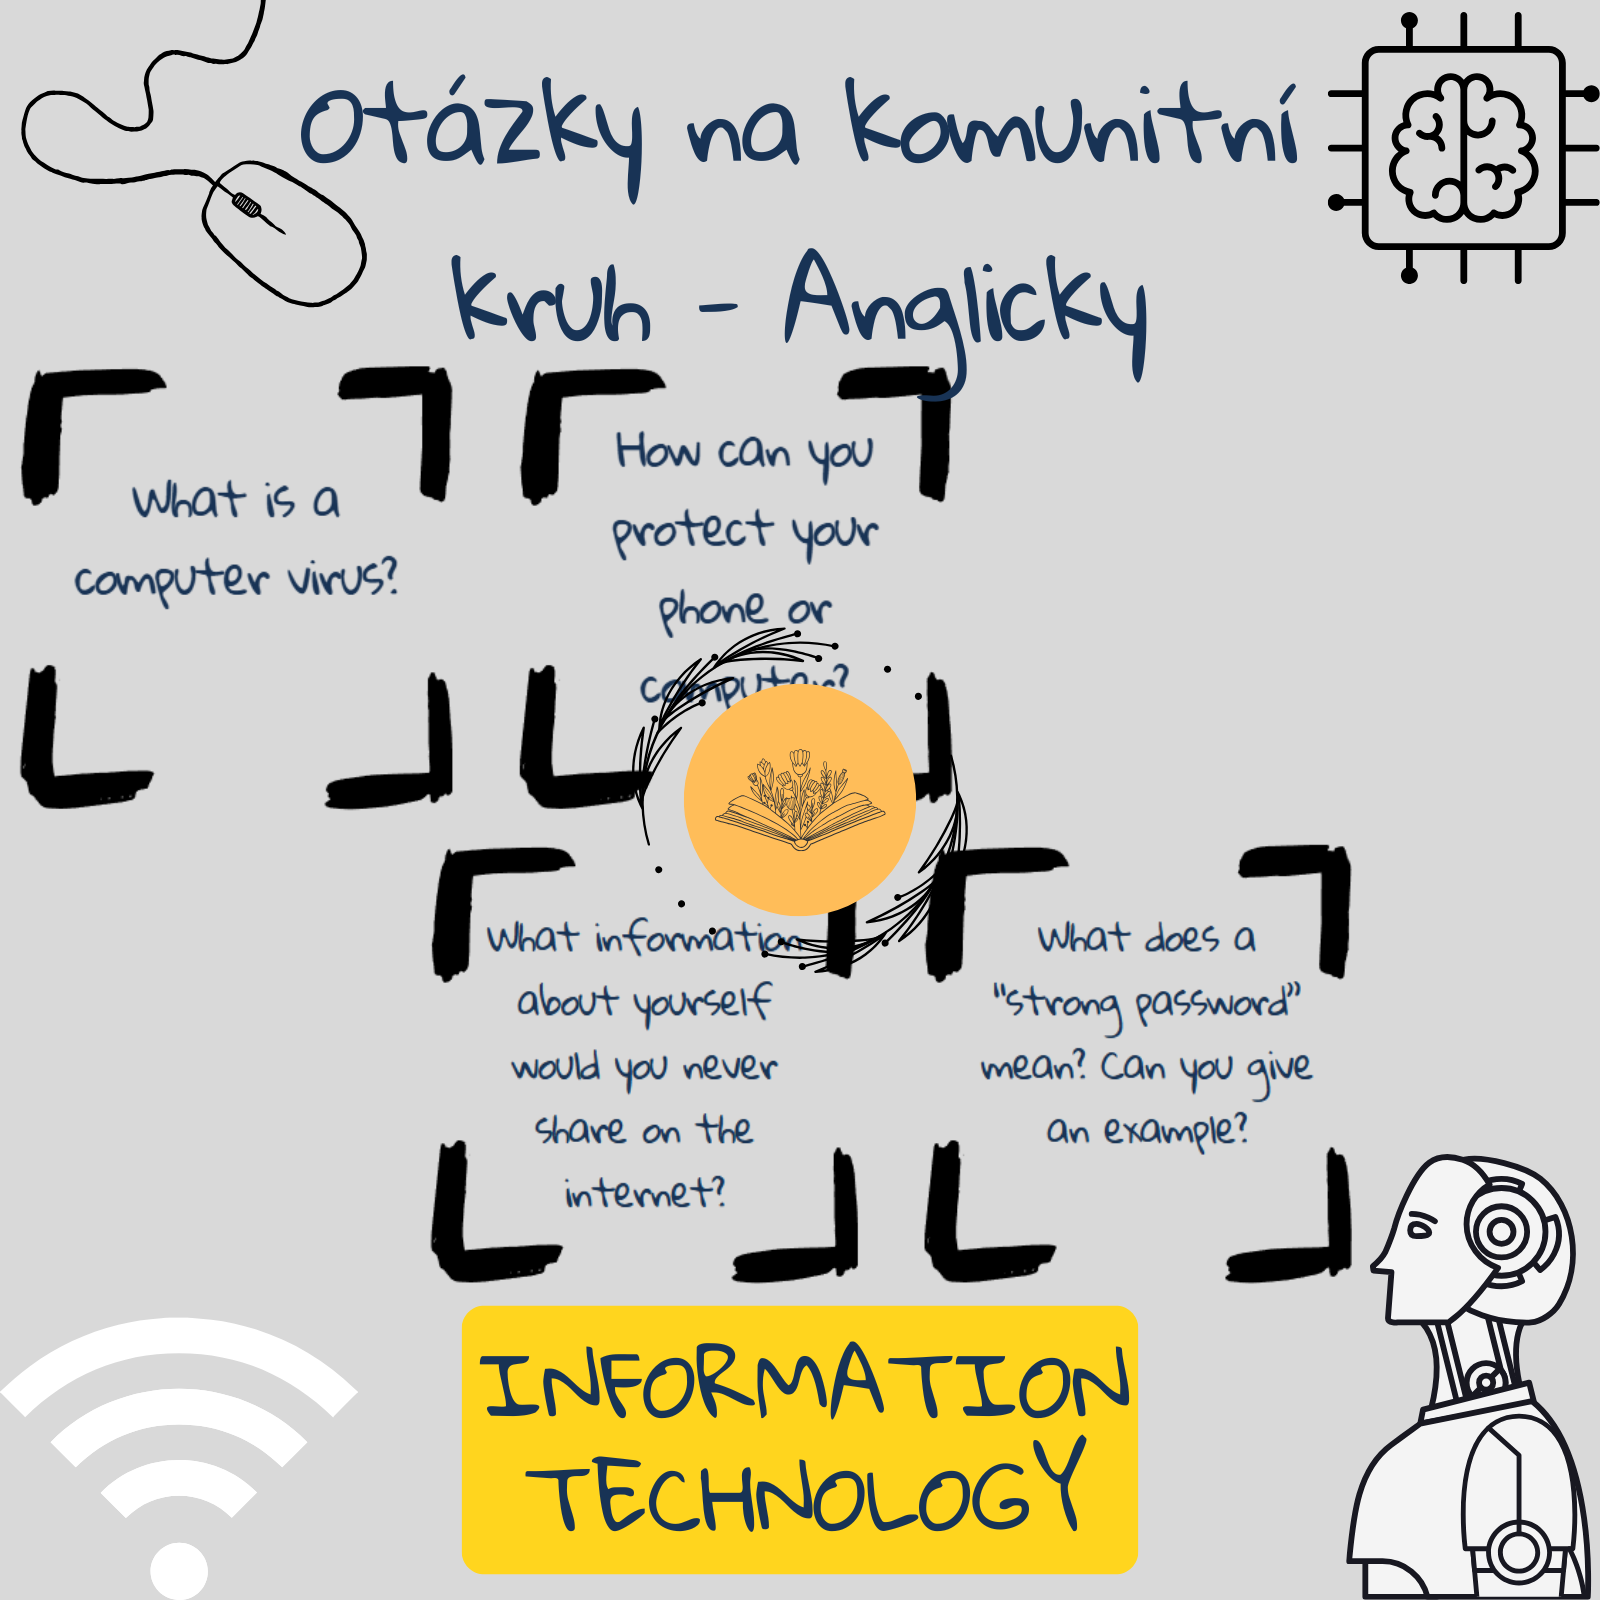 Otázky na komunitní
kruh - Anglicky
What is a
computer virus?
How can you
protect your
phone or
computer?
What information
about yourself
would you never
share on the
internet?
What does a
"strong password"
mean? Can you give
an example?
INFORMATION
TECHNOLOGY